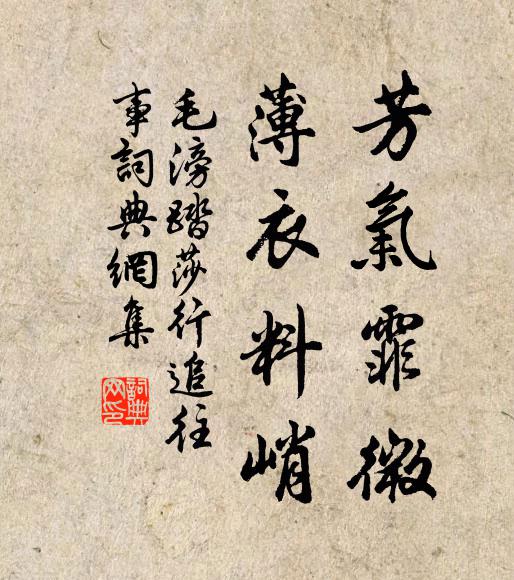 芳氣霏微
薄衣料峭
毛滂踏莎行追往
事詞典網集
詞典
网印